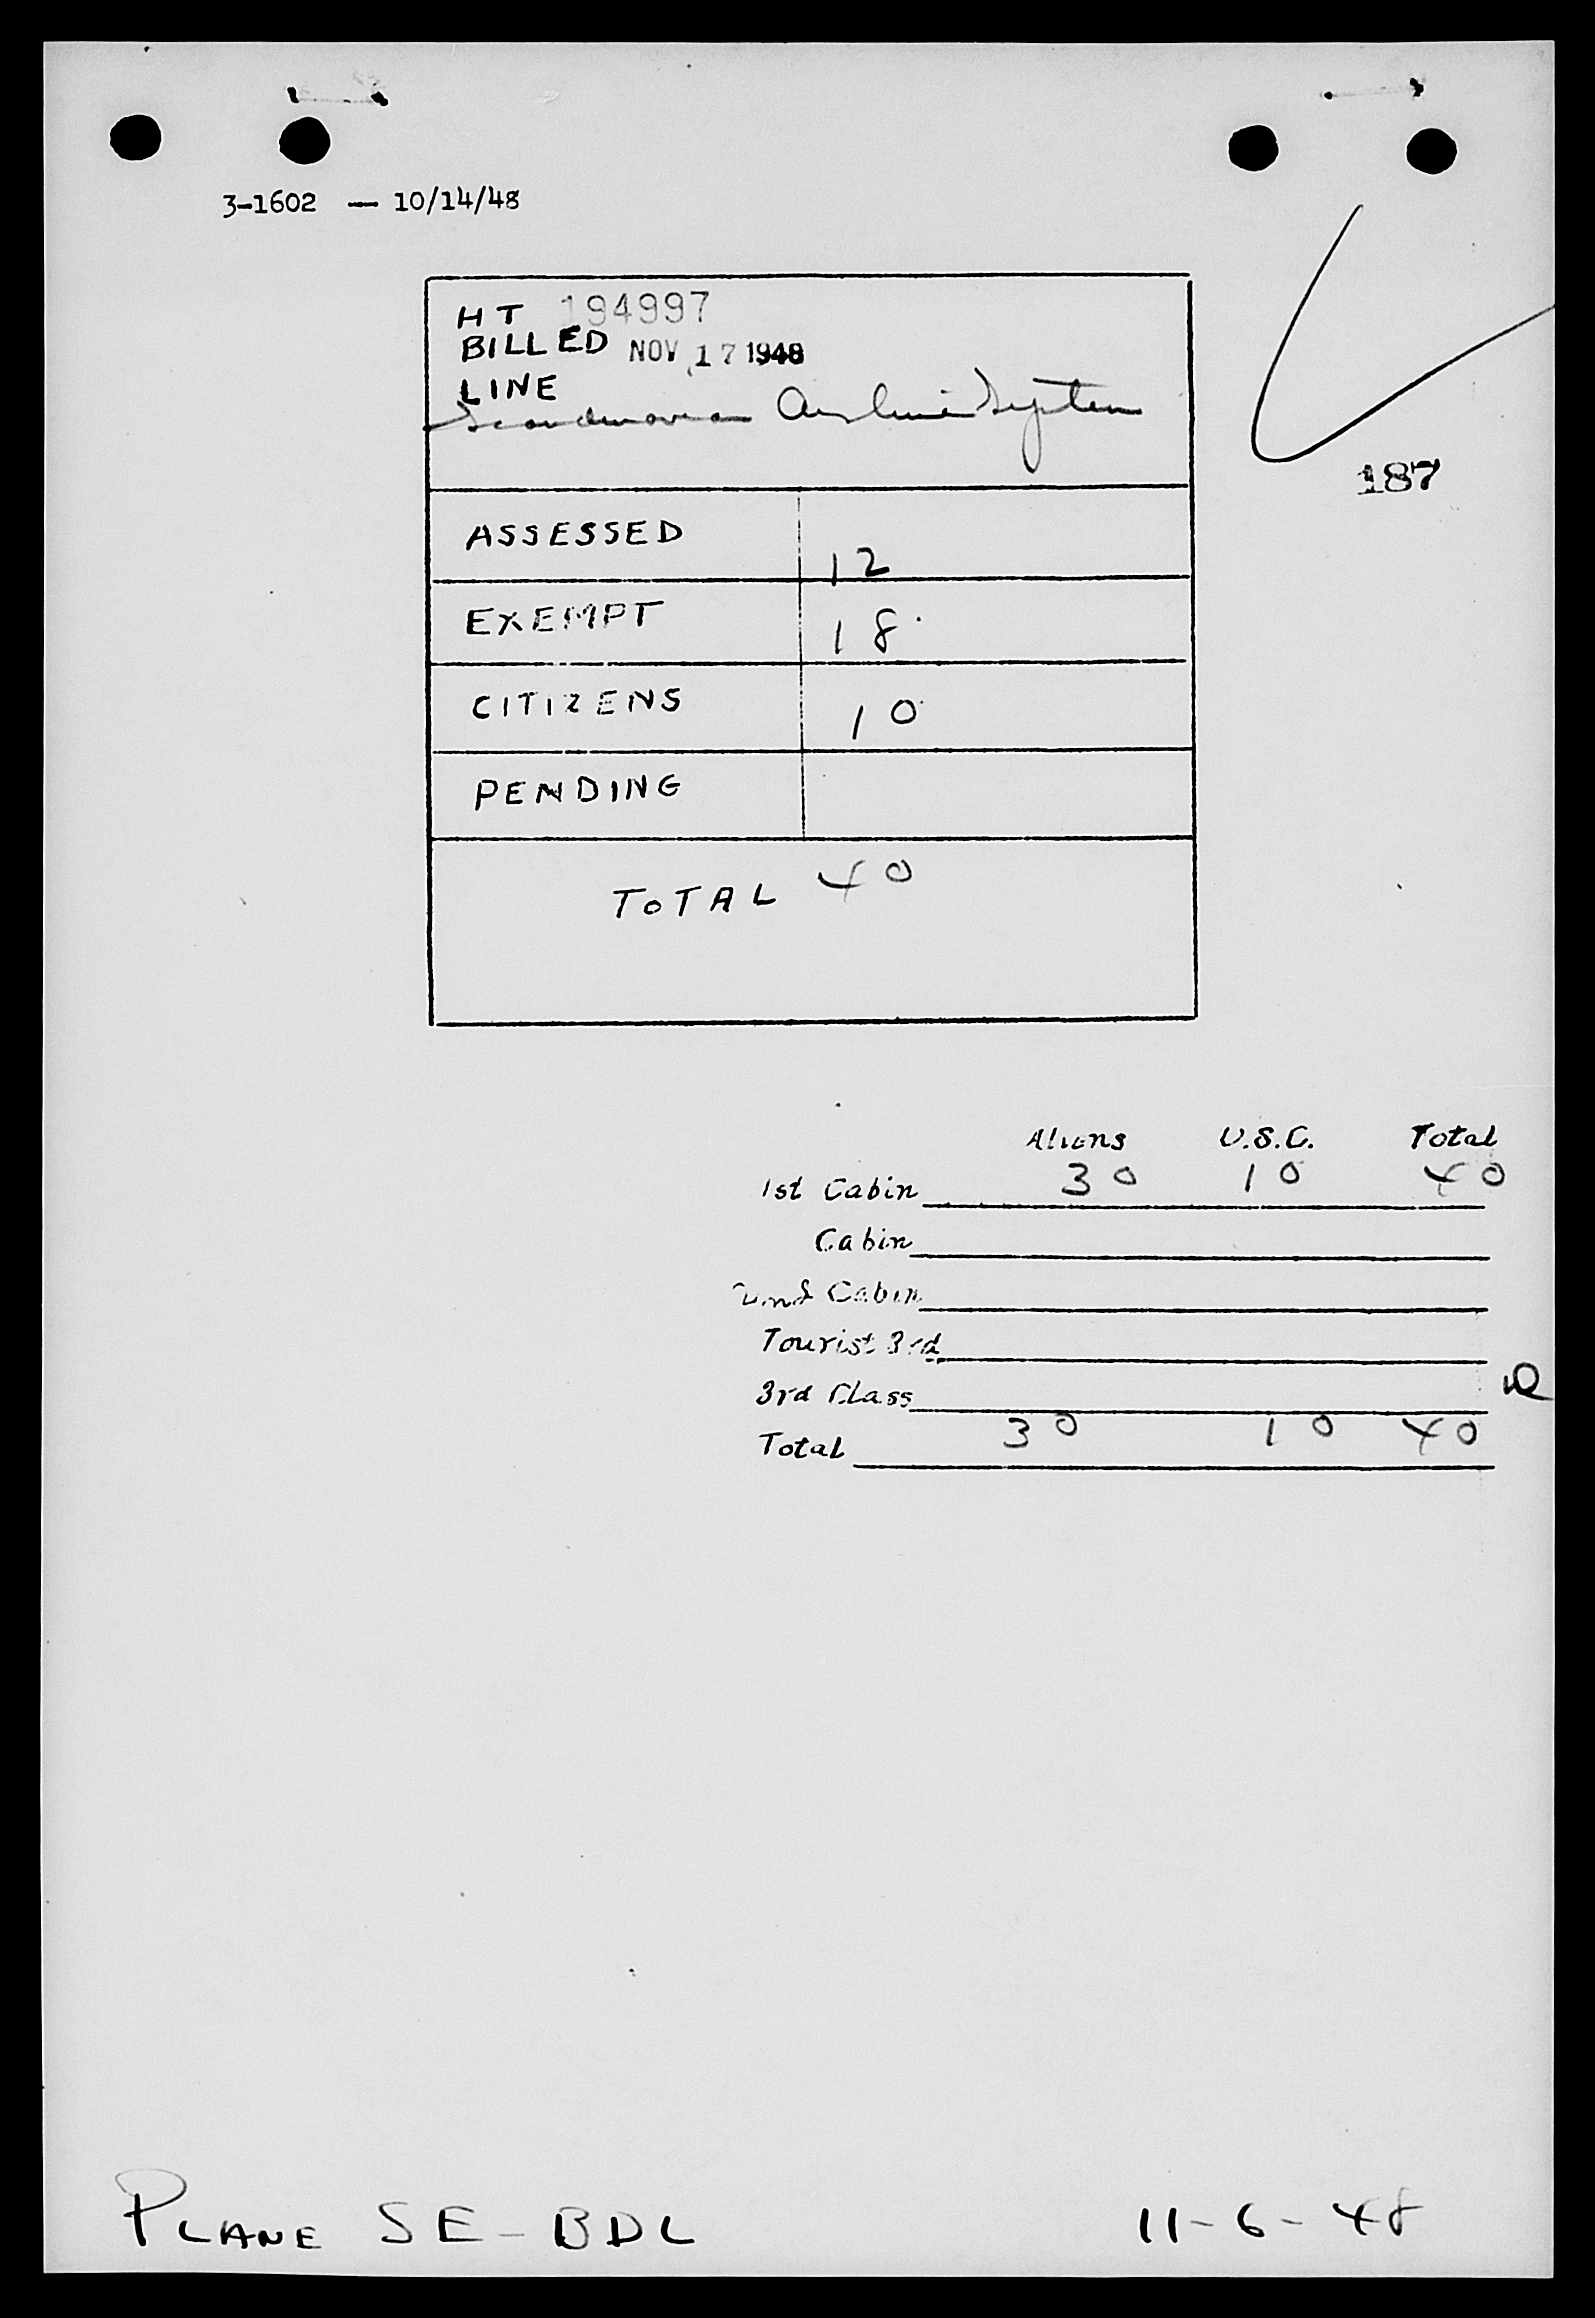 3-1602 — 10/14/48
HT 194997
BILLED NOV 17 1948
LINE
Scandinavian Airline System
187
ASSESSED 12
EXEMPT 18
CITIZENS 10
PENDING
TOTAL 40
Aliens U.S.C. Total
1st Cabin 30 10 40
Cabin
2nd Cabin
Tourist 3rd
3rd Class
Total 30 10 40
PLANE SE-BDL 11-6-48